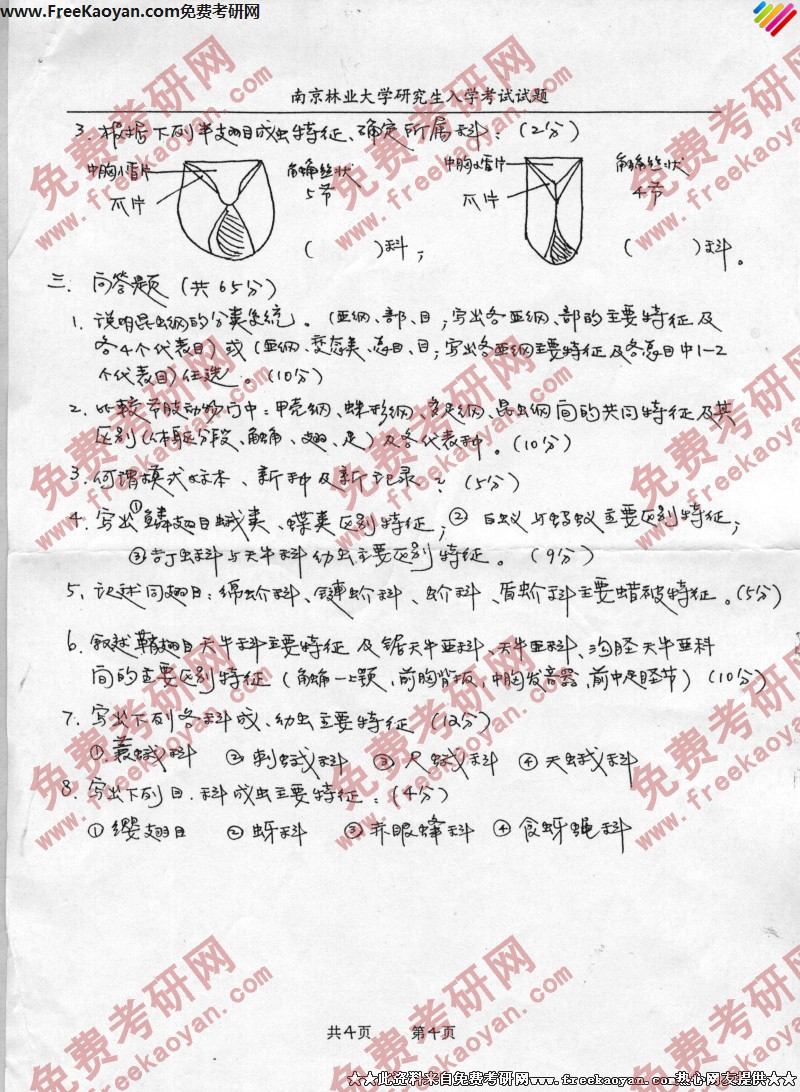 www.FreeKaoyan.com免费考研网
南京林业大学研究生入学考试试题
3. 根据下列半翅目成虫特征、确定所属科：(2分)
中胸小盾片 触角丝状 中胸小盾片 触角丝状
爪片 5节 爪片 4节
( )科； ( )科。
三. 问答题 (共65分)
1. 说明昆虫纲的分类系统。(亚纲、部、目；写出各亚纲、部的主要特征及
各4个代表目) 或 (亚纲、变态类、总目、目；写出各亚纲主要特征及各总目中1-2
个代表目) 任选。(10分)
2. 比较节肢动物门中：甲壳纲、蛛形纲、多足纲、昆虫纲间的共同特征及其
区别(体躯分段、触角、翅、足)及各代表种。(10分)
3. 何谓模式标本、新种及新记录？(5分)
4. 写出①鳞翅目蛾类、蝶类区别特征；② 白蚁与蚂蚁主要区别特征；
③吉丁虫科与天牛科幼虫主要区别特征。(9分)
5. 记述同翅目：绵蚧科、链蚧科、蚧科、盾蚧科主要蜡被特征。(5分)
6. 叙述鞘翅目天牛科主要特征及锯天牛亚科、天牛亚科、沟胫天牛亚科
间的主要区别特征 (触角一上颚、前胸背板、中胸发音器、前中足胫节) (10分)
7. 写出下列各科成、幼虫主要特征 (12分)
①.蓑蛾科 ② 刺蛾科 ③ 尺蛾科 ④ 天蛾科
8. 写出下列目.科成虫主要特征：(4分)
① 缨翅目 ② 蚜科 ③ 赤眼蜂科 ④ 食蚜蝇科
共4页 第4页
★★此资料来自免费考研网www.freekaoyan.com热心网友提供★★
免费考研网
www.freekaoyan.com